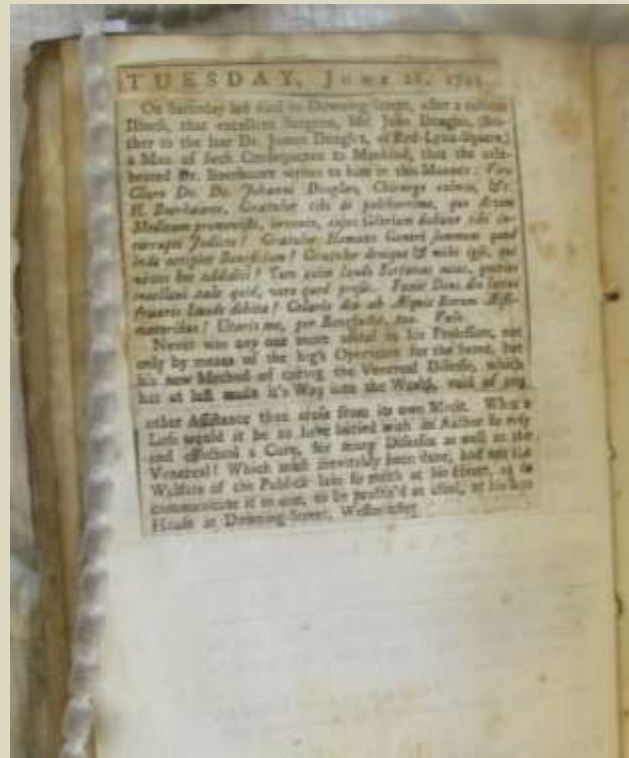 TUESDAY, June 28, 174
On Saturday last died in Downing-Street, after a tedious
Illness, that excellent Surgeon, Mr. John Douglas, Bro-
ther to the late Dr. James Douglas, of Red-Lyon-Square;
a Man of such Consequence to Mankind, that the cele-
brated Dr. Boerhaave writes to him in this Manner: Viro
Claro Dr. Dr. Johanni Douglas, Chirurgo eximio, &c.
H. Boerhaave, Gratulor tibi de pulcherrima, qua Artem
Medicam promovisti, inventa, cujus Gloriam dabunt tibi in-
corrupta Judicia! Gratulor Humano Generi summum quod
inde accipiet Beneficium! Gratulor denique & mihi ipsi, qui
Laude debita!
Utaris me, per Vale.
Never was any one more useful in his Profession, not
only by means of the high Operation for the Stone, but
his new Method of curing the Venereal Disease, which
has at last made it's Way into the World, void of any
other Assistance than arose from its own Merit. What a
Loss would it be to have buried with its Author so easy
and effectual a Cure, for many Diseases as well as the
Venereal! Which must inevitably been done, had not the
Welfare of the Publick lain so much at his Heart, as to
communicate it to one, to be practis'd as usual, at his late
House in Downing-Street, Westminster.